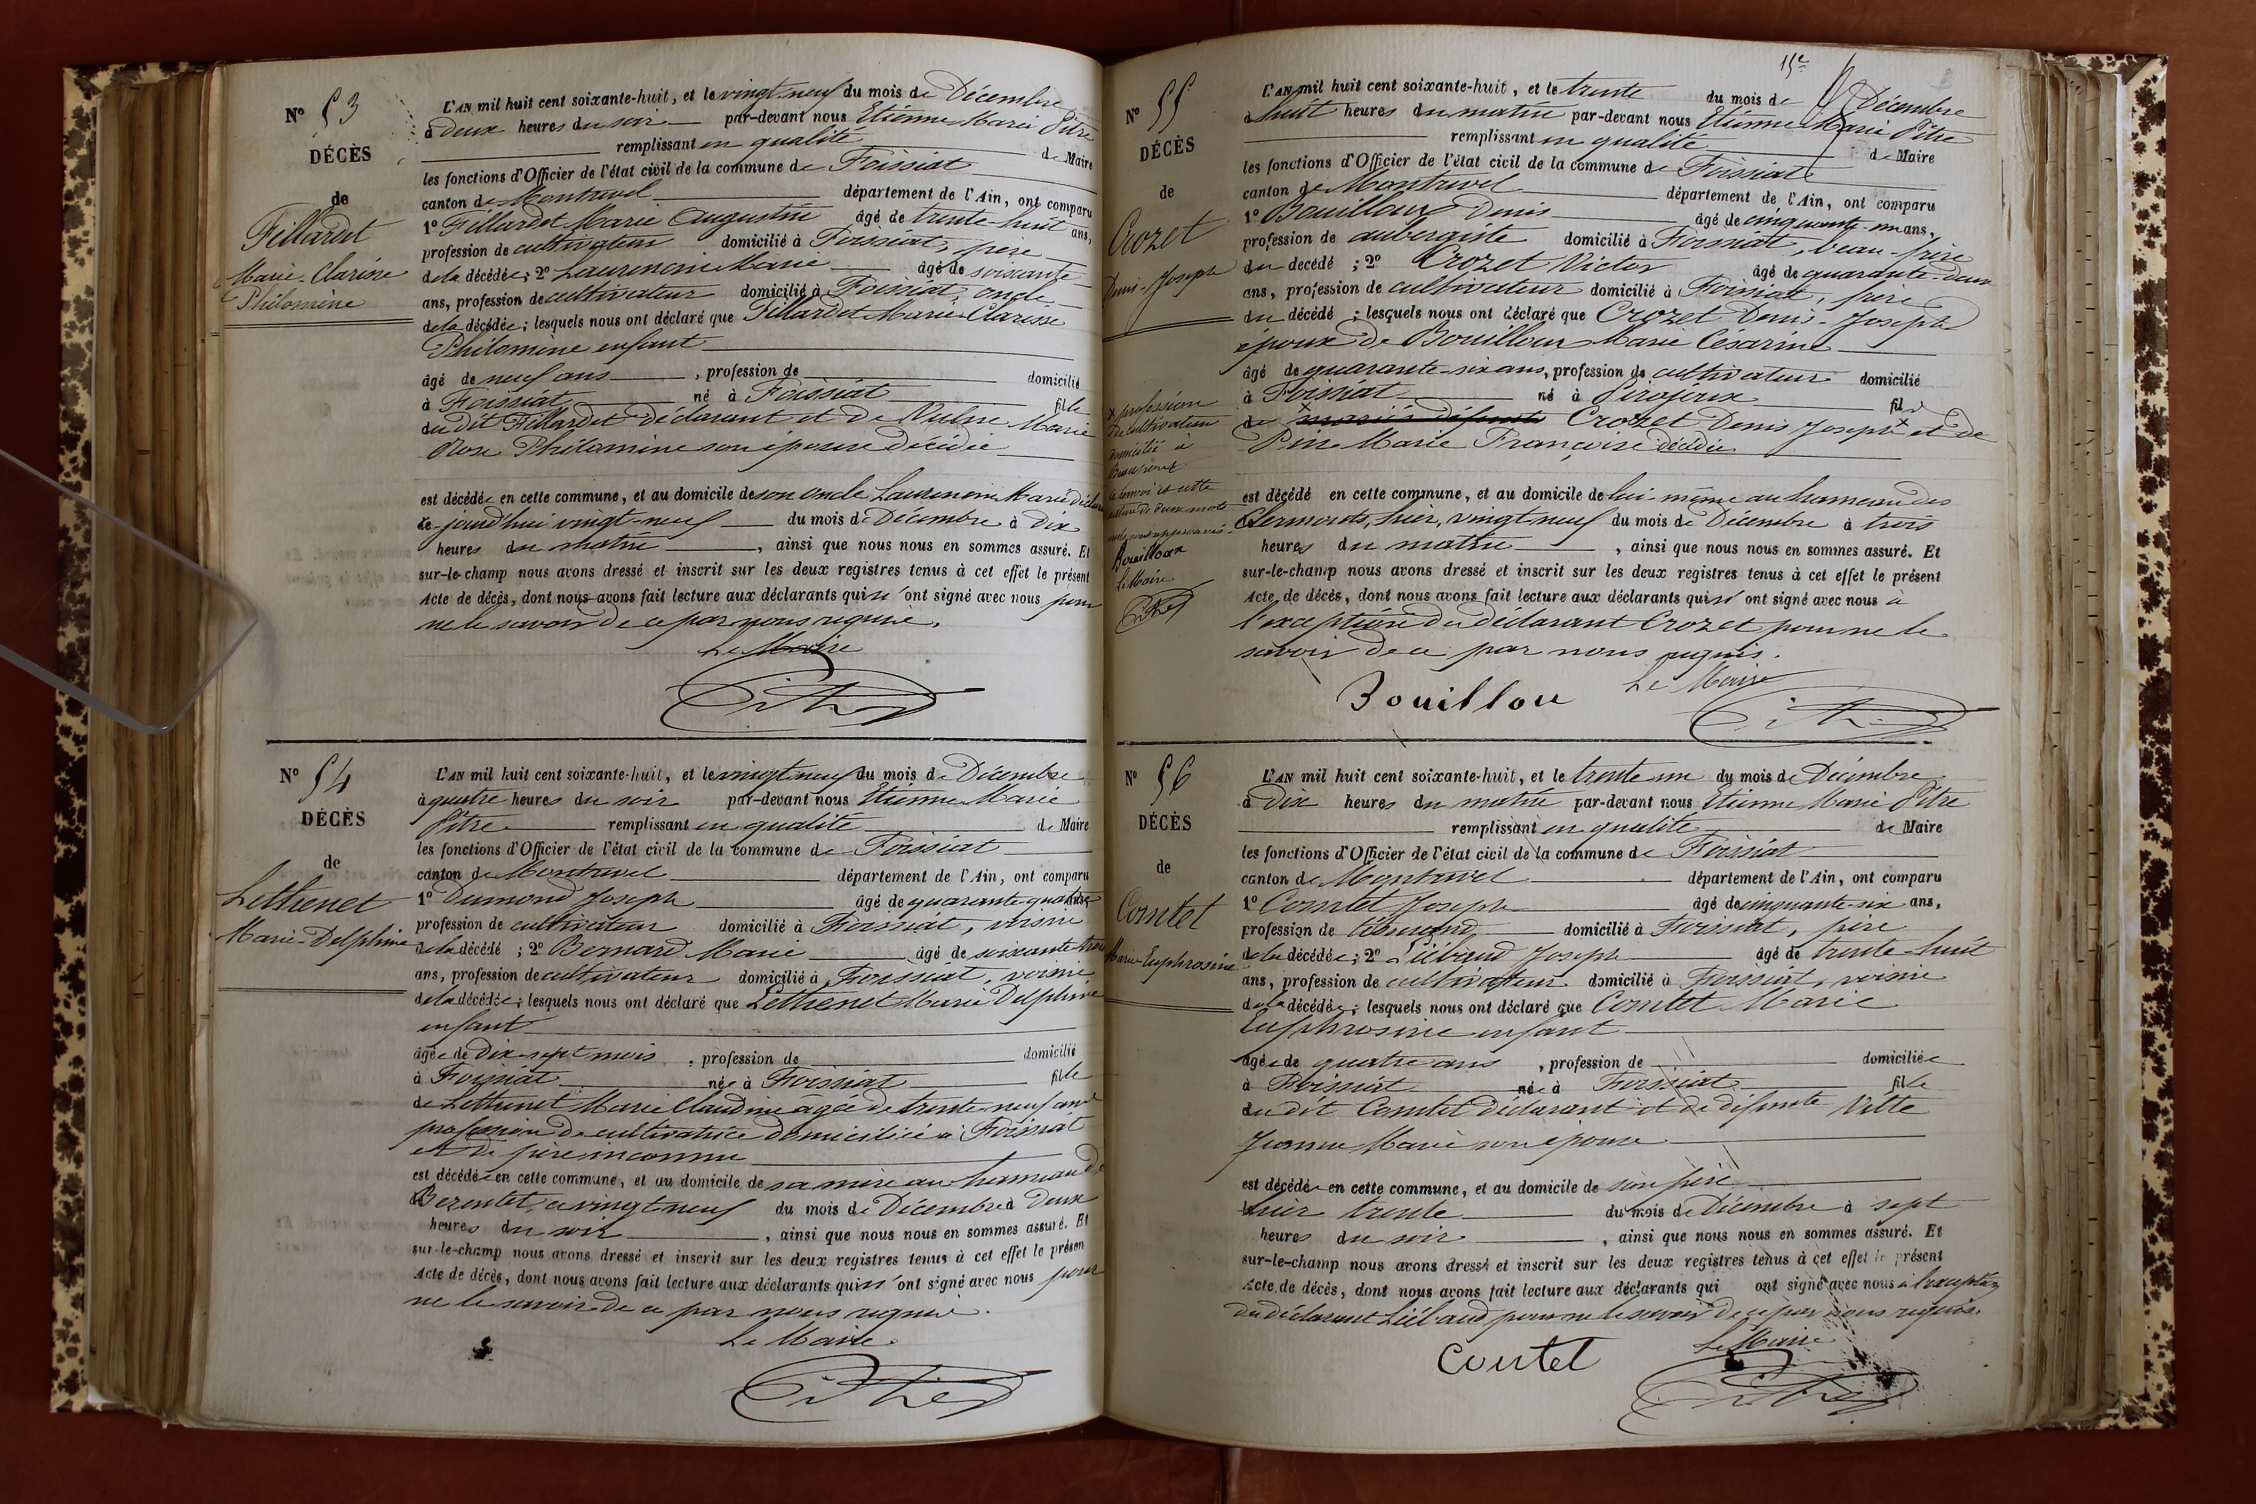 Nº 53
DÉCÈS
de
Fillardet
Marie-Clarisse
Philomène
L'AN mil huit cent soixante-huit, et le vingt-neuf du mois de Décembre
à deux heures du soir par-devant nous Etienne Marie Pitre
remplissant en qualité de Maire
les fonctions d'Officier de l'état civil de la commune de Foissiat
canton de Montrevel département de l'Ain, ont comparu
1º Fillardet Marie Augustin âgé de trente-huit ans,
profession de cultivateur domicilié à Foissiat, père
de la décédée; 2º Laurencin Marie âgé de soixante
ans, profession de cultivateur domicilié à Foissiat, oncle
de la décédée; lesquels nous ont déclaré que Fillardet Marie Clarisse
Philomène enfant
âgé de neuf ans, profession de domicilié
à Foissiat né à Foissiat fille
du dit Fillardet déclarant et de Marie
Rose Philomène son épouse décédée
est décédée en cette commune, et au domicile de son oncle Laurencin Marie
ce jourd'hui vingt-neuf du mois de Décembre à dix
heures du matin, ainsi que nous nous en sommes assuré. Et
sur-le-champ nous avons dressé et inscrit sur les deux registres tenus à cet effet le présent
Acte de décès, dont nous avons fait lecture aux déclarants qui n'ont signé avec nous pour
ne le savoir de ce par nous requis.
Le Maire
Pitre
Nº 54
DÉCÈS
de
Lethenet
Marie-Delphine
L'AN mil huit cent soixante-huit, et le vingt neuf du mois de Décembre
à quatre heures du soir par-devant nous Etienne Marie
Pitre remplissant en qualité de Maire
les fonctions d'Officier de l'état civil de la commune de Foissiat
canton de Montrevel département de l'Ain, ont comparu
1º Dumond Joseph âgé de quarante-quatre
profession de cultivateur domicilié à Foissiat, voisin
de la décédé; 2º Bernard Marie âgé de soixante trois
ans, profession de cultivateur domicilié à Foissiat, voisin
de la décédée; lesquels nous ont déclaré que Lethenet Marie Delphine
enfant
âgée de dix-sept mois, profession de domicilié
à Foissiat née à Foissiat fille
de Lethenet Marie Claudine âgée de trente-neuf ans
profession de cultivatrice domiciliée à Foissiat
et de père inconnu
est décédée en cette commune, et au domicile de sa mère au hameau de
ce vingt neuf du mois de Décembre à deux
heures du soir, ainsi que nous nous en sommes assuré. Et
sur-le-champ nous avons dressé et inscrit sur les deux registres tenus à cet effet le présen
Acte de décès, dont nous avons fait lecture aux déclarants qui n'ont signé avec nous pour
ne le savoir de ce par nous requis.
Le Maire.
Pitre
15e
Nº 55
DÉCÈS
de
Crozet
Denis-Joseph
L'AN mil huit cent soixante-huit, et le trente du mois de Décembre
à huit heures du matin par-devant nous Etienne Marie Pitre
remplissant en qualité de Maire
les fonctions d'Officier de l'état civil de la commune de Foissiat
canton de Montrevel département de l'Ain, ont comparu
1º Bouilloux Denis âgé de cinquante-un ans,
profession de aubergiste domicilié à Foissiat, beau-frère
du decédé; 2º Crozet Victor âgé de quarante-deux
ans, profession de cultivateur domicilié à Foissiat, frère
du décédé; lesquels nous ont déclaré que Crozet Denis-Joseph
époux de Bouilloux Marie Césarine
âgé de quarante-six ans, profession de cultivateur domicilié
à Foissiat né à fils
de Crozet Denis Joseph x et de
Pin Marie Françoise décédée
x profession
de cultivateur
domicilié à
Bouilloux
Le Maire
Pitre
est décédé en cette commune, et au domicile de lui-même au hameau des
Clermonts, hier, vingt neuf du mois de Décembre à trois
heures du matin, ainsi que nous nous en sommes assuré. Et
sur-le-champ nous avons dressé et inscrit sur les deux registres tenus à cet effet le présent
Acte de décès, dont nous avons fait lecture aux déclarants qui ont signé avec nous à
l'exception du déclarant Crozet pour ne le
savoir de ce par nous requis.
Le Maire
Bouillou
Pitre
Nº 56
DÉCÈS
de
Comtet
Marie-Euphrosine
L'AN mil huit cent soixante-huit, et le trente un du mois de Décembre
à dix heures du matin par-devant nous Etienne Marie Pitre
remplissant en qualité de Maire
les fonctions d'Officier de l'état civil de la commune de Foissiat
canton de Montrevel département de l'Ain, ont comparu
1º Comtet Joseph âgé de cinquante-six ans,
profession de domicilié à Foissiat, père
de la décédée; 2º Joseph âgé de trente-huit
ans, profession de cultivateur domicilié à Foissiat, voisin
de la décédée; lesquels nous ont déclaré que Comtet Marie
Euphrosine enfant
âgée de quatre ans, profession de domiciliée
à Foissiat née à Foissiat fille
du dit Comtet déclarant et de défunte Vitte
Jeanne Marie son épouse
est décédée en cette commune, et au domicile de son père
hier trente du mois de Décembre à sept
heures du soir, ainsi que nous nous en sommes assuré. Et
sur-le-champ nous avons dressé et inscrit sur les deux registres tenus à cet effet le présent
Acte de décès, dont nous avons fait lecture aux déclarants qui ont signé avec nous à l'exception
du déclarant pour ne le savoir de ce par nous requis.
Le Maire
Contet
Pitre